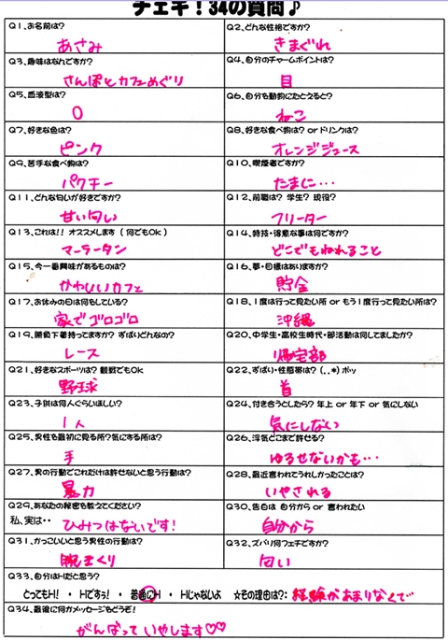 チェキ！34の質問♪
Q1、お名前は？ Q2、どんな性格ですか？
あさみ きまぐれ
Q3、趣味はなんですか？ Q4、自分のチャームポイントは？
さんぽとカフェめぐり 目
Q5、血液型は？ Q6、自分を動物にたとえると？
O ねこ
Q7、好きな色は？ Q8、好きな食べ物は？ or ドリンクは？
ピンク オレンジジュース
Q9、苦手な食べ物は？ Q10、喫煙者ですか？
パクチー たまに…
Q11、どんな匂いが好きですか？ Q12、前職は？ 学生？ 現役？
甘い匂い フリーター
Q13、これは！！ オススメします（何でもOk） Q14、特技・得意な事は何ですか？
マーラータン どこでもねれること
Q15、今一番興味があるものは？ Q16、夢・目標はありますか？
かわいいカフェ 貯金
Q17、お休みの日は何をしている？ Q18、1度は行って見たい所 or もう1度行って見たい所は？
家でゴロゴロ 沖縄
Q19、勝負下着持ってますか？ ずばりどんなの？ Q20、中学生・高校生時代・部活動は何してましたか？
レース 帰宅部
Q21、好きなスポーツは？ 観戦でもOk Q22、ずばり・性感帯は？(．．*)ポッ
野球 首
Q23、子供は何人ぐらいほしい？ Q24、付き合うとしたら？ 年上 or 年下 or 気にしない
1人 気にしない
Q25、男性を最初に見る所？気にする所は？ Q26、浮気どこまで許せる？
手 ゆるせないかも…
Q27、男の行動でこれだけは許せないと思う行動は？ Q28、最近言われてうれしかったことは？
暴力 いやされる
Q29、あなたの秘密を教えてください？ Q30、告白は 自分から or 言われたい
私、実は・・ ひみつはないです！ 自分から
Q31、かっこいいと思う男性の行動は？ Q32、ズバリ何フェチですか？
腕まくり 匂い
Q33、自分はHだと思う？
とってもH！ ・ Hですっ！ ・ 普通にH ・ Hじゃないよ ☆その理由は？: 経験があまりなくて
Q34、最後に何かメッセージをどうぞ！
がんばっていやします♡♡